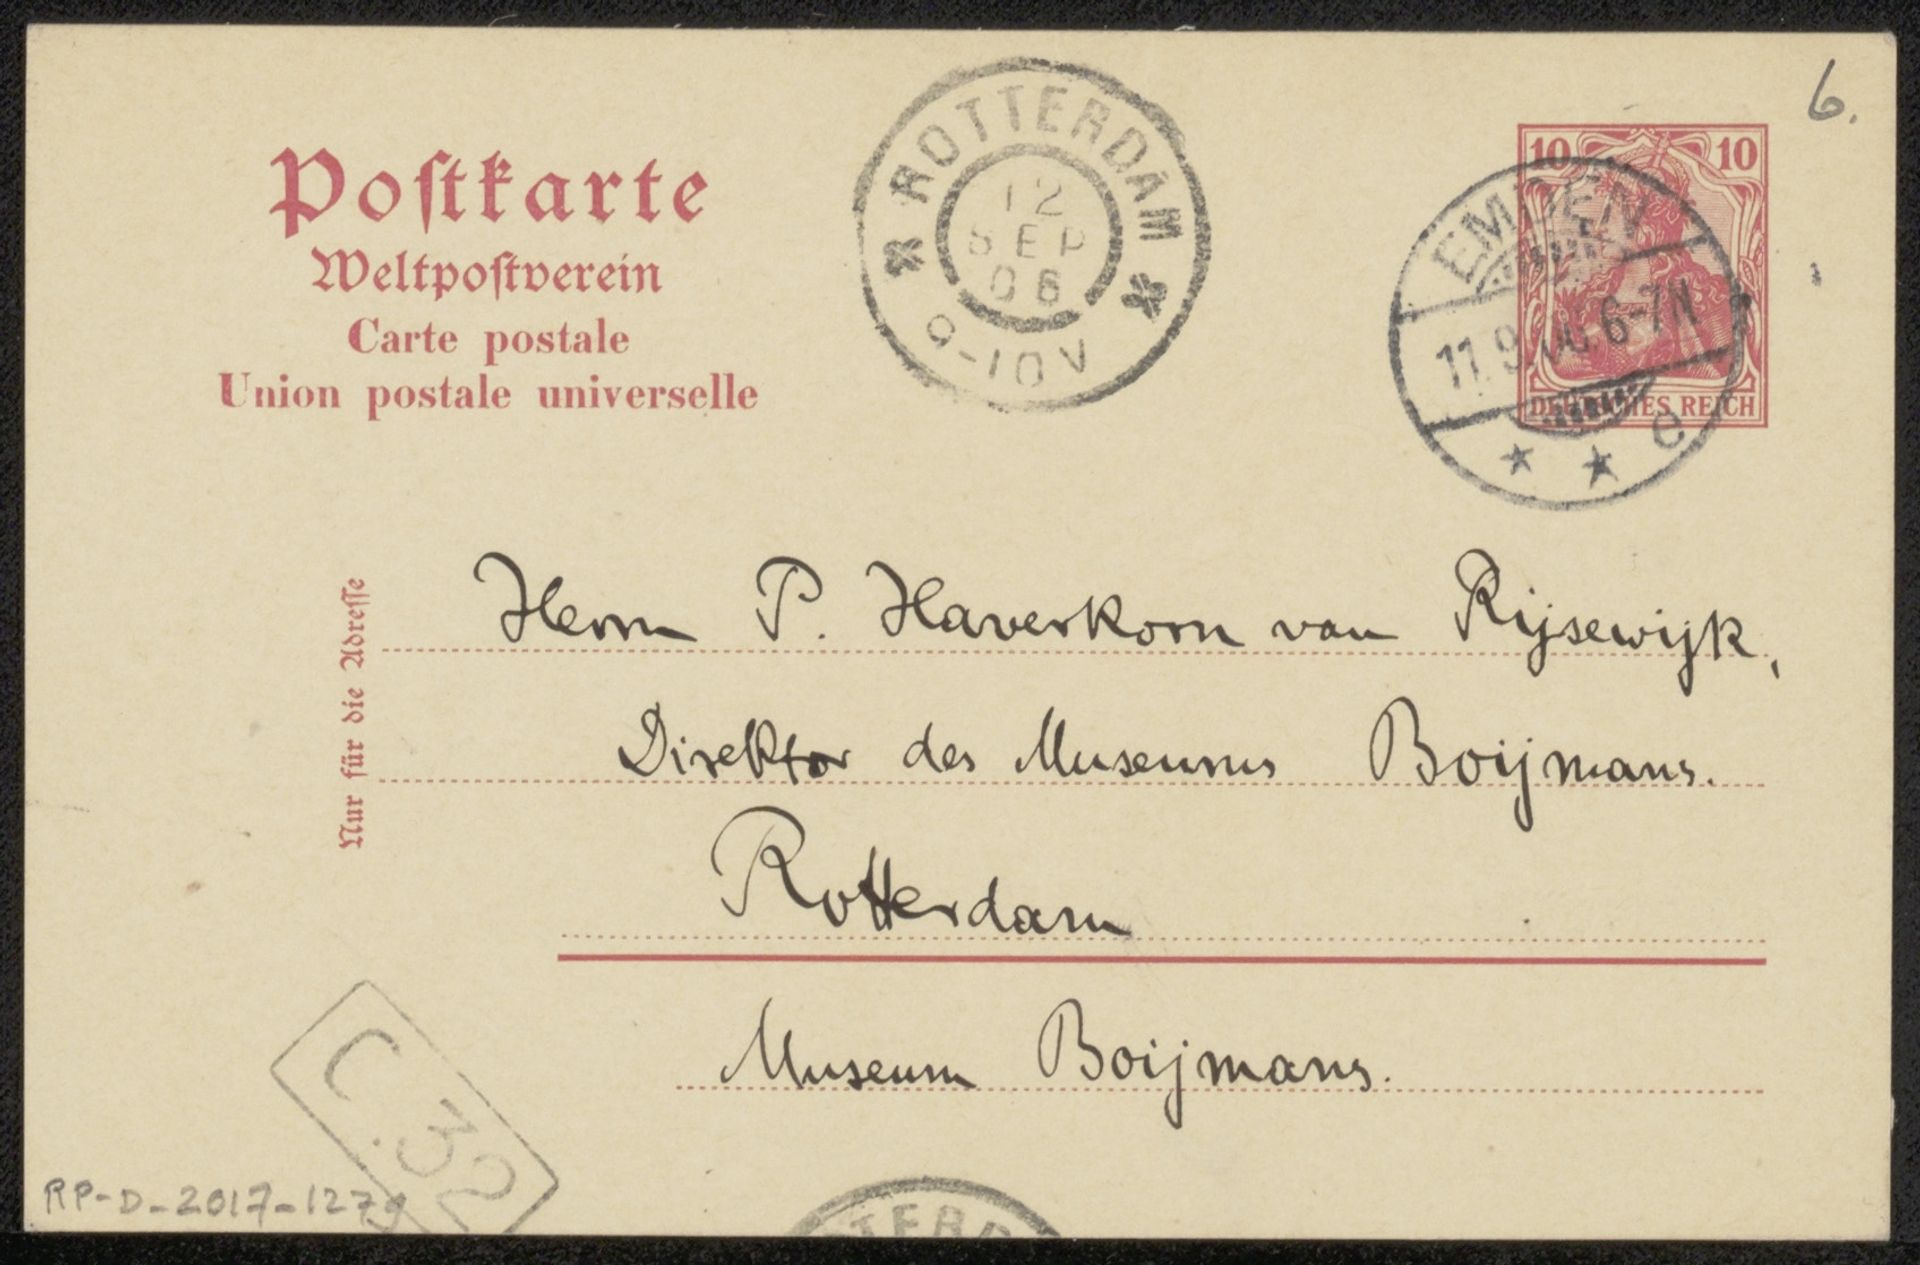 6.
Poſtkarte
Weltpoſtverein
Carte postale
Union postale universelle
ROTTERDAM
12
SEP
06
9-10V
10 10
DEUTSCHES REICH
EMDEN
11.9.06.6-7N
* * c
Nur für die Adreſſe
Herrn P. Haverkorn van Rijsewijk,
Direktor des Museums Boijmans.
Rotterdam
Museum Boijmans.
C.32
RP-D-2017-1279
TTERD